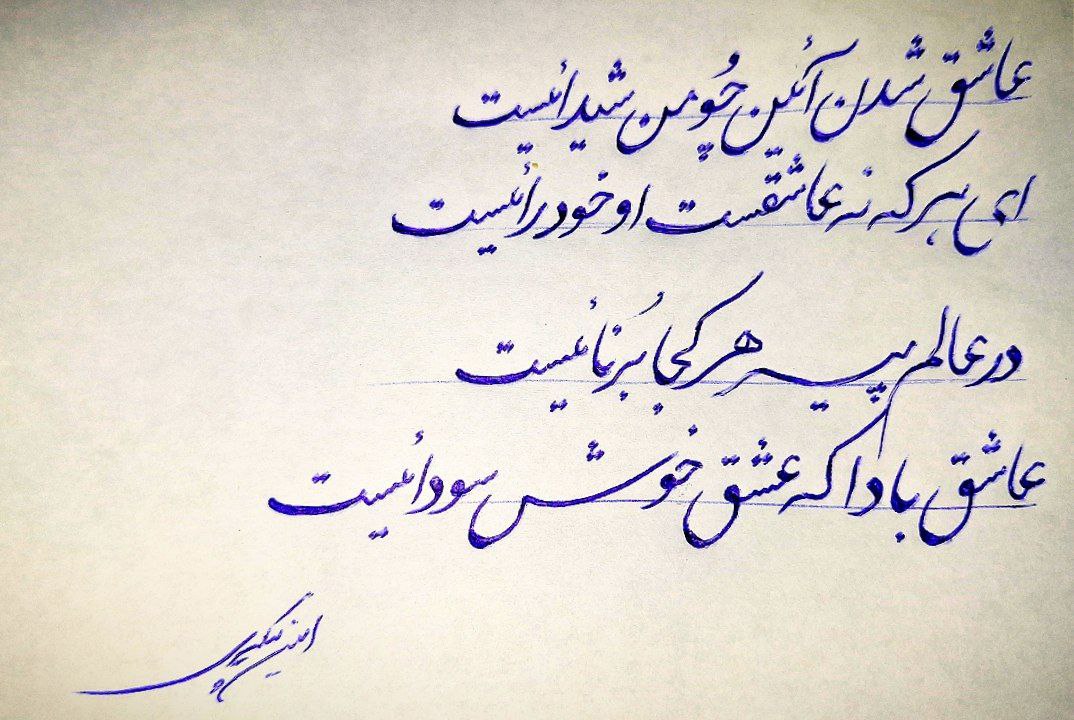 عاشق شدن آئین چُو من شیدائیست
ای هر که نه عاشقست او خود رائیست
در عالم پیر هر کجا بُرنائیست
عاشق بادا که عشق خوش سودائیست
امین